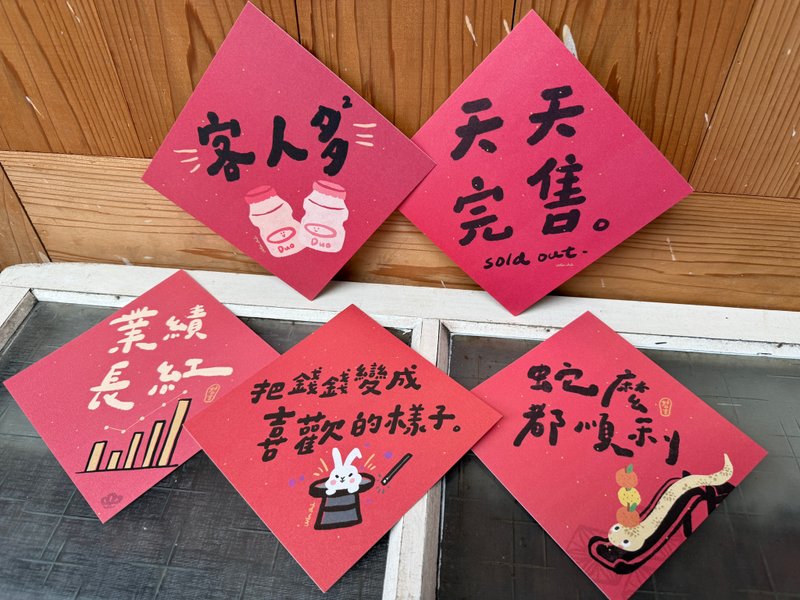 客人多²
Duo
Duo
天天
完售。
sold out.
業績
長紅
把錢錢變成
喜歡的樣子。
蛇麼
都順利